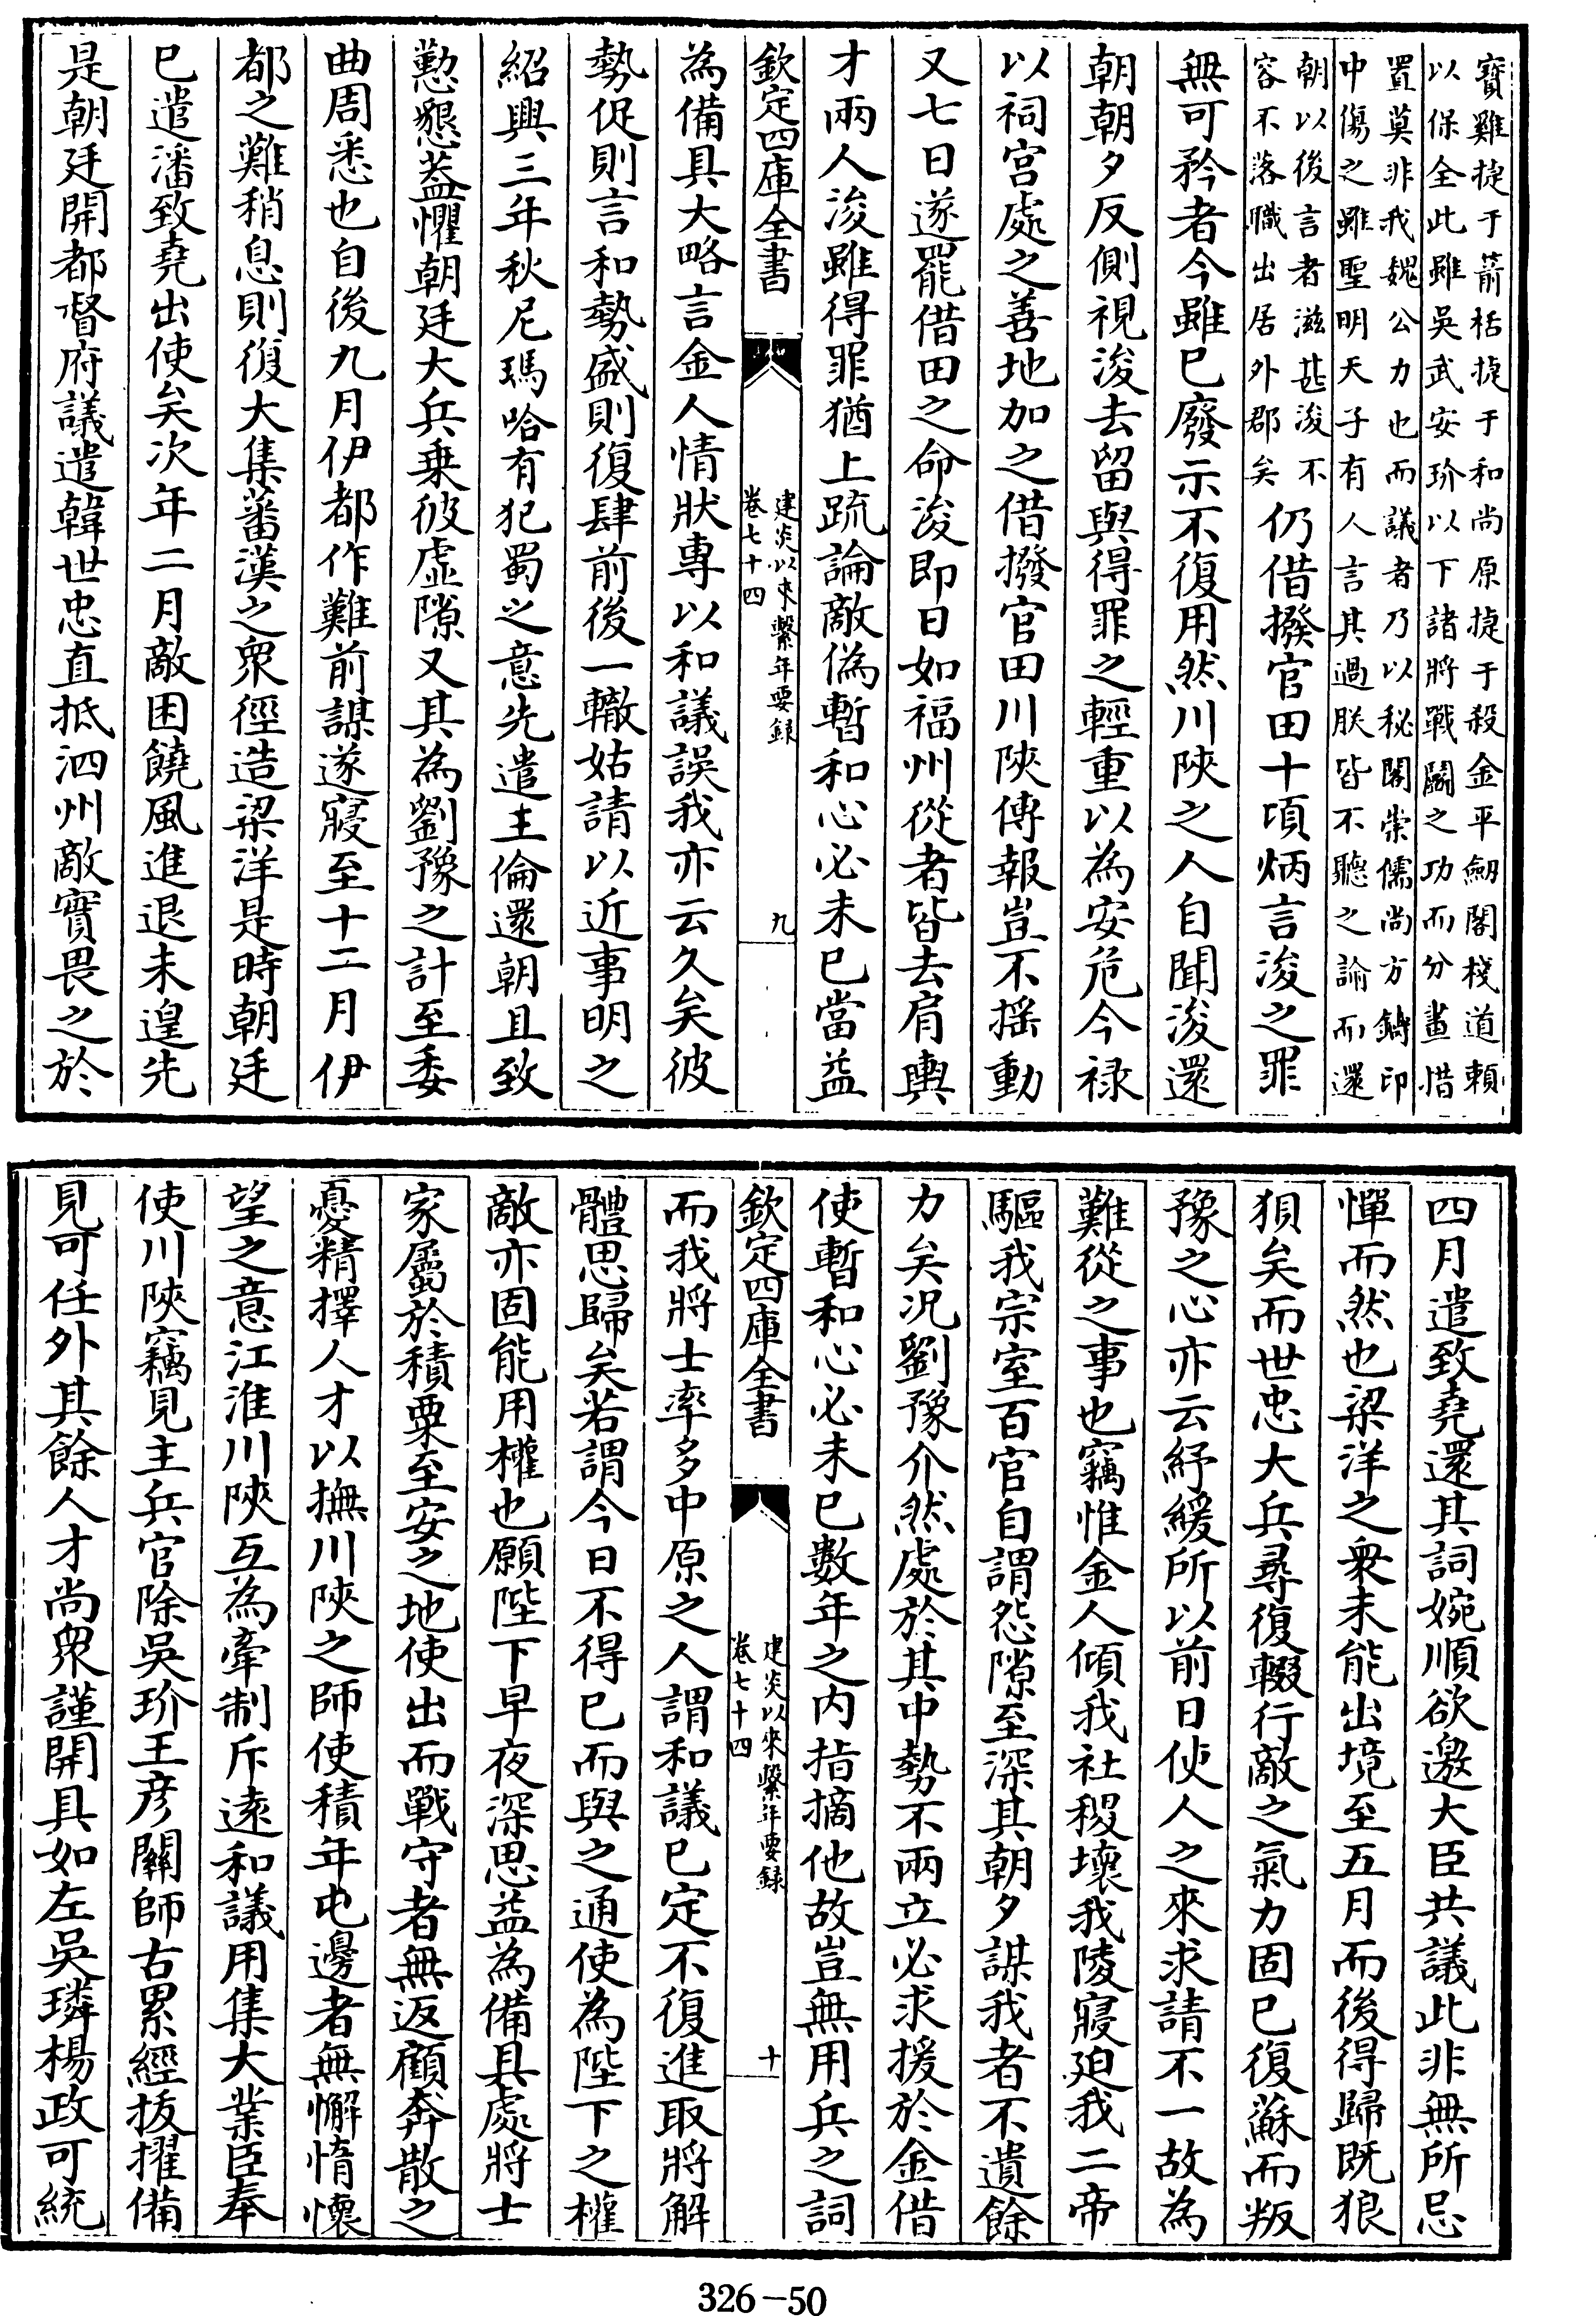 寶雞捷于箭栝捷于和尚原捷于殺金平劒閣棧道頼
以保全此雖吳武安玠以下諸將戰鬭之功而分畫惜
置莫非我魏公力也而議者乃以秘閣崇儒尚方鑄印
中傷之雖聖明天子有人言其過朕皆不聽之論而還
朝以後言者滋甚浚不
容不落職出居外郡矣
仍借撥官田十頃炳言浚之罪
無可矜者今雖已廢示不復用然川陜之人自聞浚還
朝朝夕反側視浚去留與得罪之輕重以為安危今祿
以祠宫處之善地加之借撥官田川陜傳報豈不摇動
又七日遂罷借田之命浚即日如福州從者皆去肩輿
才兩人浚雖得罪猶上疏論敵偽暫和心必未已當益
欽定四庫全書
建炎以來繫年要録
卷七十四
九
為備具大略言金人情狀專以和議誤我亦云久矣彼
勢促則言和勢盛則復肆前後一轍姑請以近事明之
紹興三年秋尼瑪哈有犯蜀之意先遣王倫還朝且致
懃懇葢懼朝廷大兵乗彼虛隙又其為劉豫之計至委
曲周悉也自後九月伊都作難前謀遂寢至十二月伊
都之難稍息則復大集蕃漢之衆徑造梁洋是時朝廷
已遣潘致堯出使矣次年二月敵困饒風進退未遑先
是朝廷開都督府議遣韓世忠直抵泗州敵實畏之於
四月遣致堯還其詞婉順欲邀大臣共議此非無所忌
憚而然也梁洋之衆未能出境至五月而後得歸既狼
狽矣而世忠大兵尋復輟行敵之氣力固已復蘇而叛
豫之心亦云紓緩所以前日使人之來求請不一故為
難從之事也竊惟金人傾我社稷壞我陵寢廹我二帝
驅我宗室百官自謂怨隙至深其朝夕謀我者不遺餘
力矣况劉豫介然處於其中勢不兩立必求援於金借
使暫和心必未已數年之内指摘他故豈無用兵之詞
欽定四庫全書
建炎以來繫年要録
卷七十四
十
而我將士率多中原之人謂和議已定不復進取將解
體思歸矣若謂今日不得已而與之通使為陛下之權
敵亦固能用權也願陛下早夜深思益為備具處將士
家屬於積粟至安之地使出而戰守者無返顧奔散之
憂精擇人才以撫川陜之師使積年屯邊者無懈惰懷
望之意江淮川陜互為牽制斥逺和議用集大業臣奉
使川陜竊見主兵官除吳玠王彦關師古累經拔擢備
見可任外其餘人才尚衆謹開具如左吳璘楊政可統
326-50